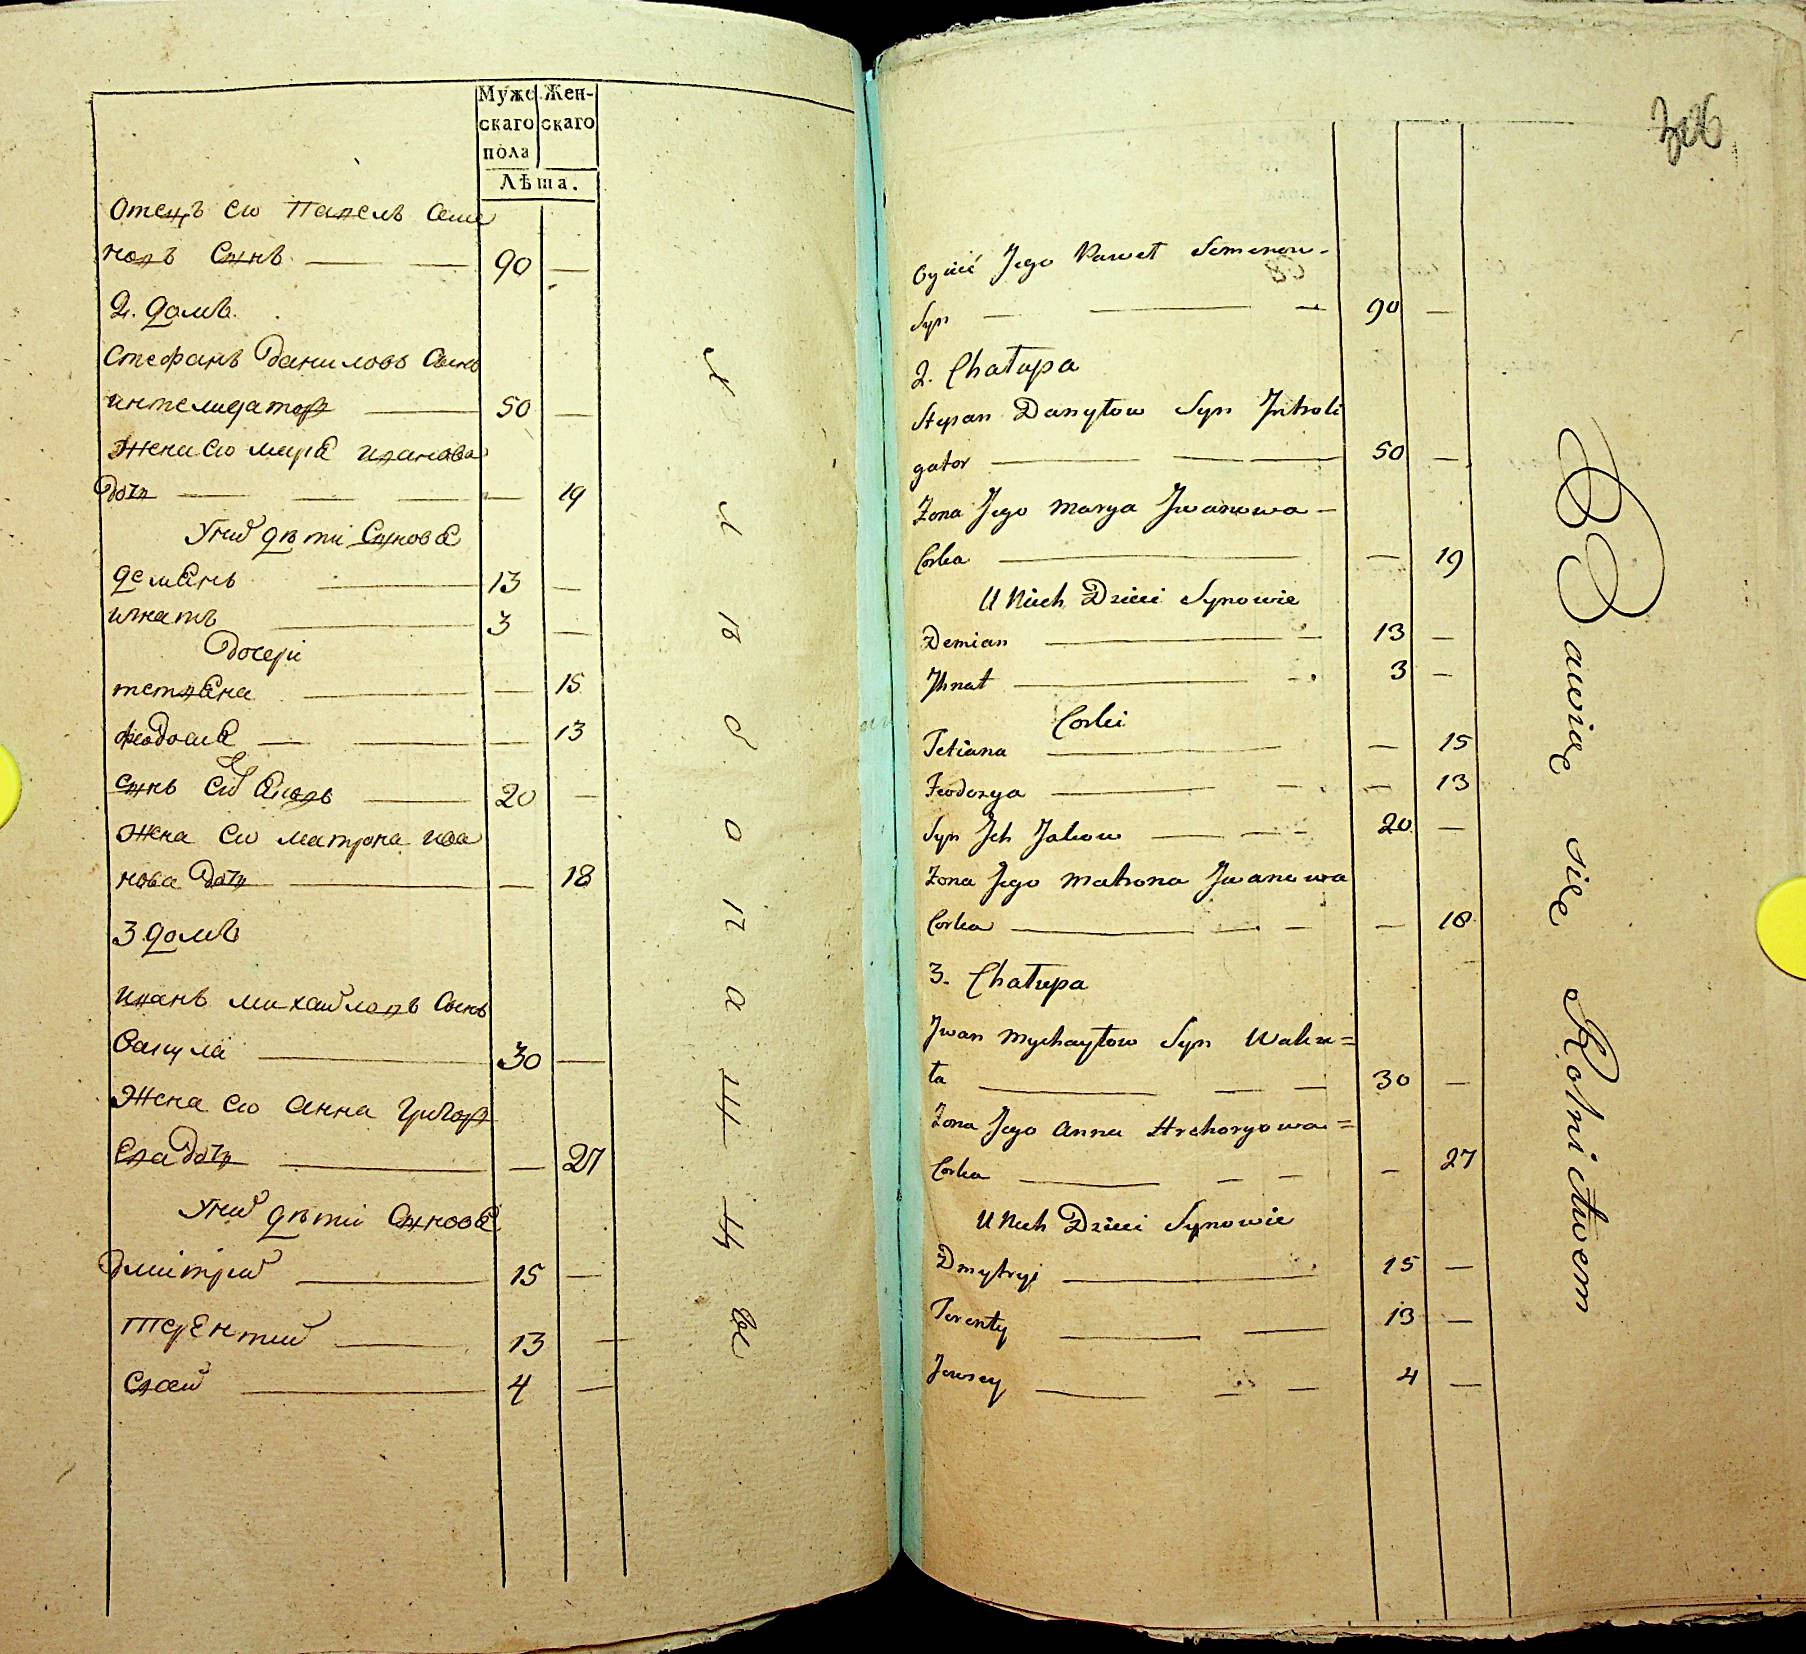 Мужс Жен-
скаго скаго
пола
Лѣта.
Отецъ его Павелъ Семе
новъ Сынъ 90 —
2. домъ.
Стефанъ Даниловъ Сынъ
интелигаторъ 50 —
Жена его Марія Иванова
Дочь — 19
У них дѣти Сынове
Деміанъ 13 —
Игнатъ 3 —
Дочери
Тетіана — 15
Феодосіа — 13
Сынъ их Яковъ 20 —
Жена его Матрона Ива
нова Дочь — 18
3 домъ
Иванъ Михайловъ Сынъ
30 —
Жена его Анна Григор
Ева Дочь — 27
У них дѣти Сынове
Дмітрій 15 —
Терентий 13 —
Евсей 4 —
306
Oyciec Jego Paweł Semenow-
Syn — 90 —
2. Chałupa
Stepan Danyłow Syn Introli
gator 50 —
Żona Jego Marya Jwanowa —
Corka — 19
U Nich Dzieci Synowie
Demian 13 —
Jhnat 3 —
Corki
Tetiana — 15
Feodozya — 13
Syn Jch Jakow 20 —
Żona Jego Matrona Jwanowa
Corka — 18
3. Chałupa
Jwan Mychayłow Syn Waku=
ła 30 —
Żona Jego Anna Hrehoryowa=
Corka — 27
U Nich Dzieci Synowie
Dmytryj 15 —
Terenty 13 —
Jewsey 4 —
Bawiąc się Rolnictwem